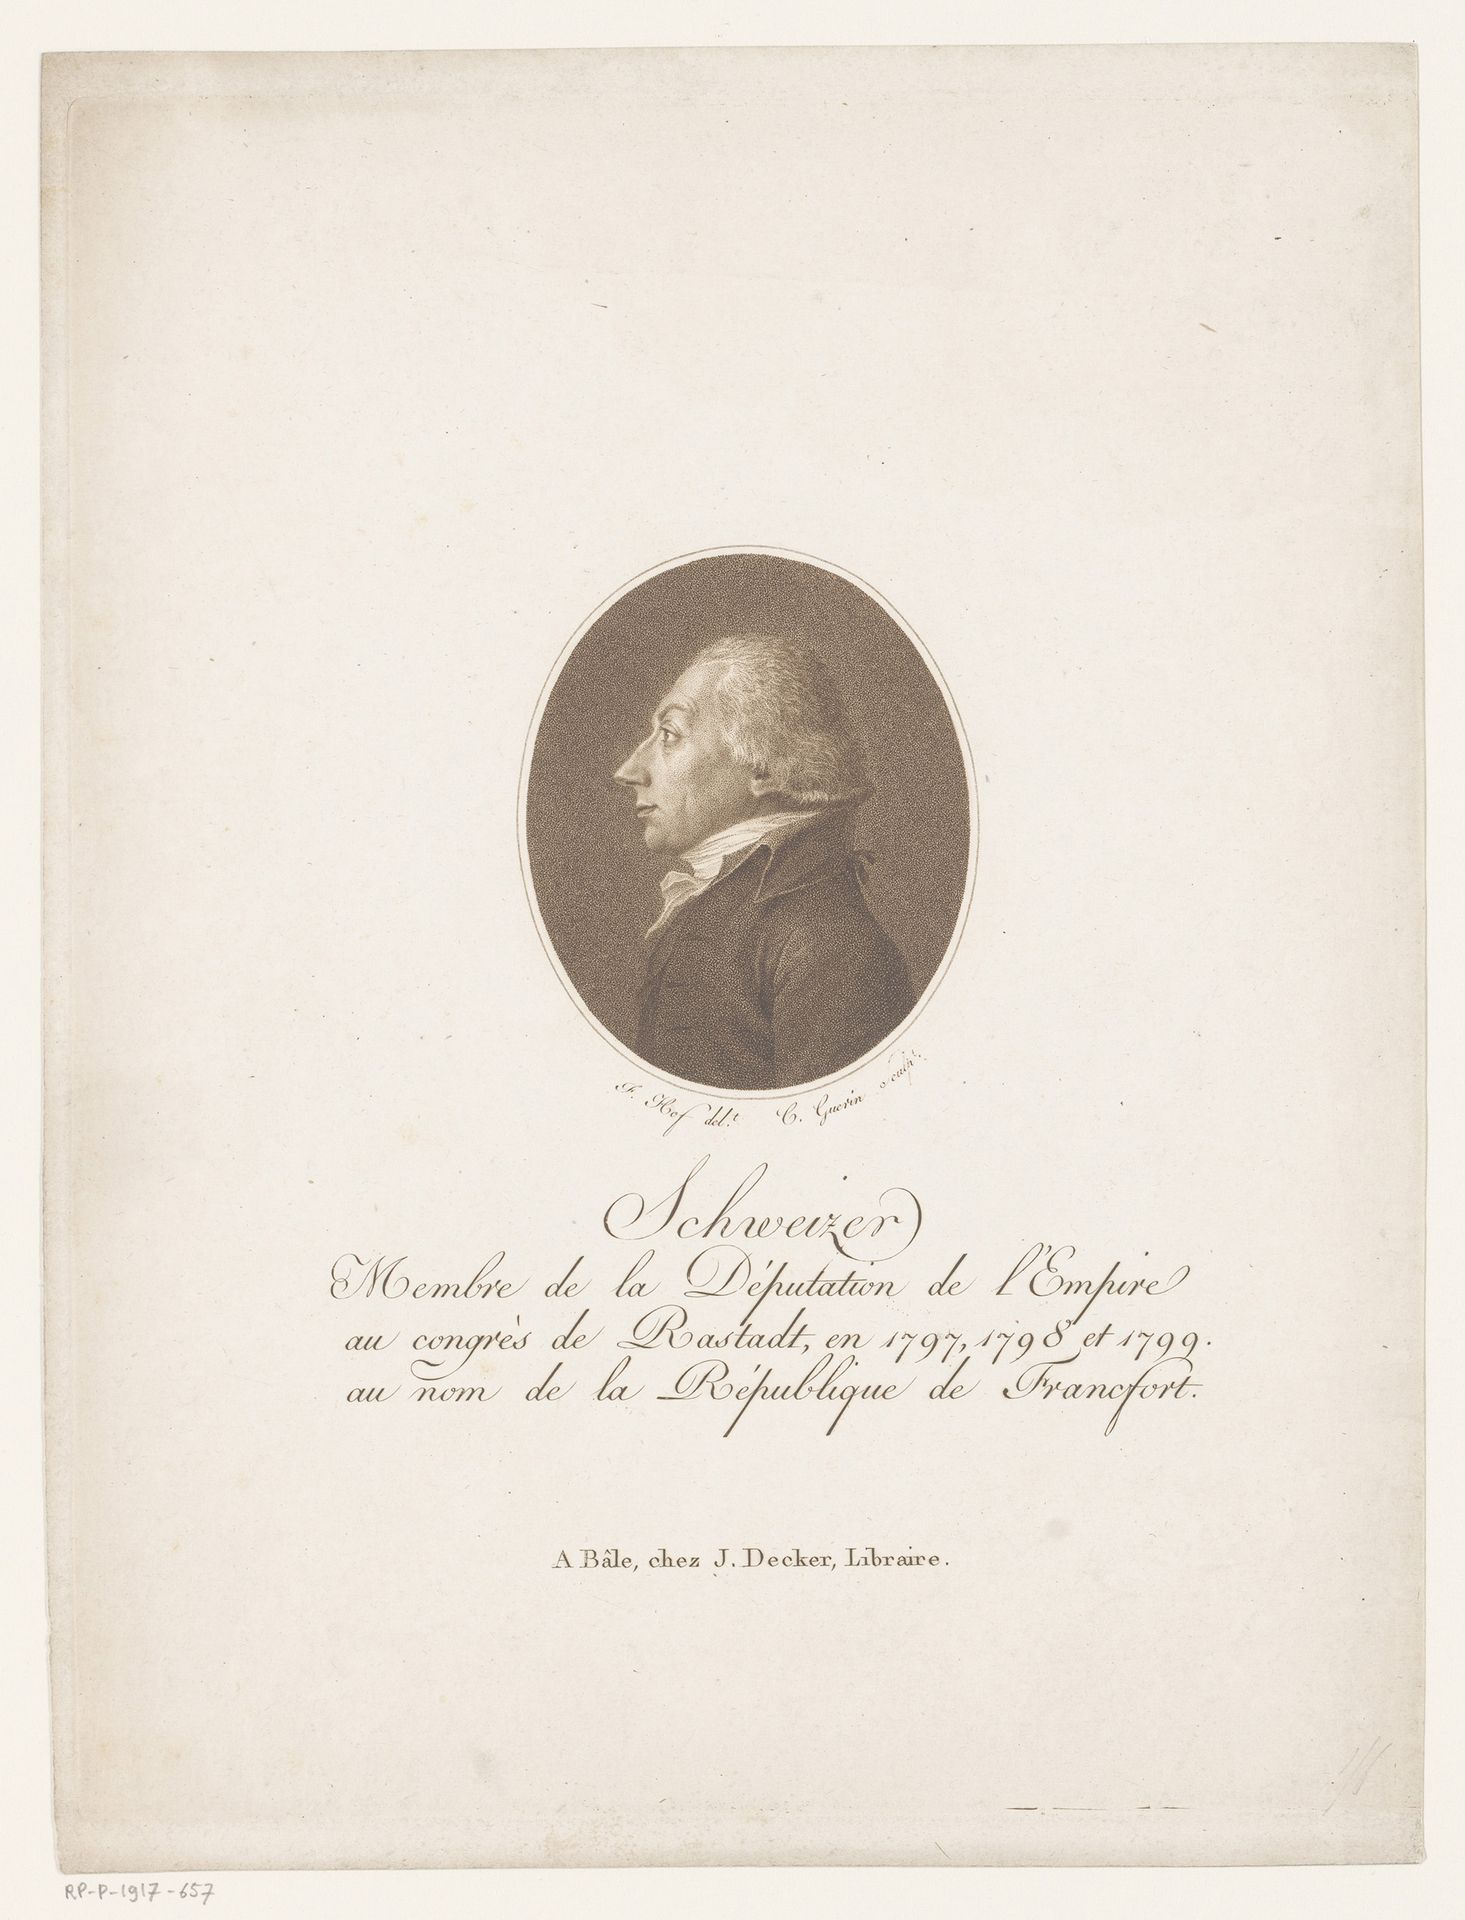 F. Hof del.t C. Guerin sculp.t
Schweizer
Membre de la Députation de l'Empire
au congrès de Rastadt, en 1797, 1798 et 1799.
au nom de la République de Francfort.
A Bâle, chez J. Decker, Libraire.
RP-P-1917-657